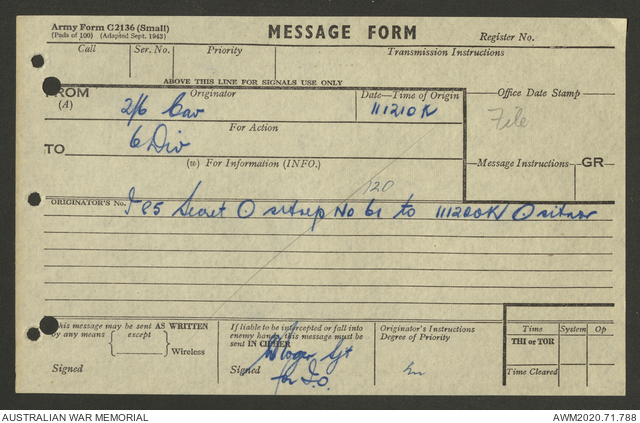 Army Form C2136 (Small)
(Pads of 100) (Adapted Sept. 1943)
MESSAGE FORM
Register No.
Call Ser. No. Priority Transmission Instructions
ABOVE THIS LINE FOR SIGNALS USE ONLY
FROM Originator Date—Time of Origin Office Date Stamp
(A) 2/6 Cav 111210K File
For Action
TO 6 Div
(w) For Information (INFO.) Message Instructions GR
120
ORIGINATOR'S No. I 85 Secret O sitrep No 61 to 111200K O
This message may be sent AS WRITTEN
by any means except
Wireless
Signed
If liable to be intercepted or fall into
enemy hands, this message must be
sent IN CIPHER
Signed Sjt
for I.O.
Originator's Instructions
Degree of Priority
Time System Op
THI or TOR
Time Cleared
AUSTRALIAN WAR MEMORIAL AWM2020.71.788